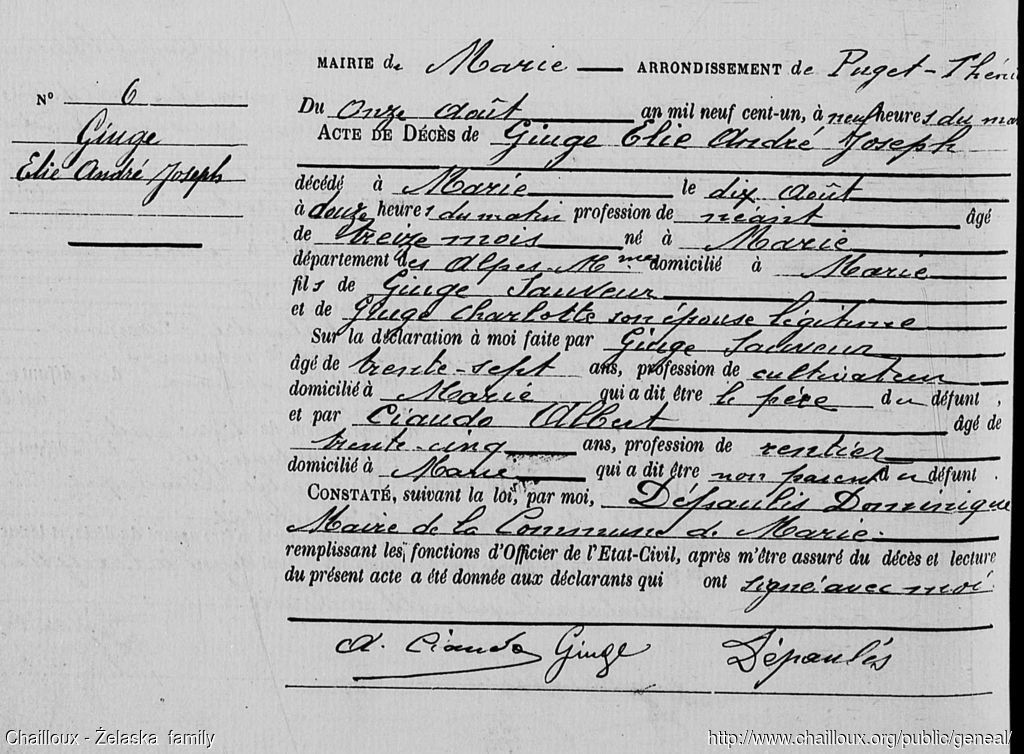 MAIRIE de Marie — ARRONDISSEMENT de Puget-Théni
N° 6
Giuge
Elie André Joseph
Du onze Août an mil neuf cent-un, à neuf heures du ma
ACTE DE DÉCÈS de Giuge Elie André Joseph
décédé à Marie le dix Août
à douze heures du matin profession de néant âgé
de treize mois né à Marie
département des Alpes-Mmes domicilié à Marie
fils de Giuge Sauveur
et de Giuge Charlotte son épouse légitime
Sur la déclaration à moi faite par Giuge Sauveur
âgé de trente-sept ans, profession de cultivateur
domicilié à Marie qui a dit être le père du défunt,
et par Ciaudo Albert âgé de
trente-cinq ans, profession de rentier
domicilié à Marie qui a dit être non parent du défunt.
CONSTATÉ, suivant la loi, par moi, Dépaulis Dominique
Maire de la Commune de Marie.
remplissant les fonctions d'Officier de l'Etat-Civil, après m'être assuré du décès et lecture
du présent acte a été donnée aux déclarants qui ont signé avec moi.
A. Ciaudo Giuge Dépaulis
Chailloux - Želaska family
http://www.chailloux.org/public/geneal/